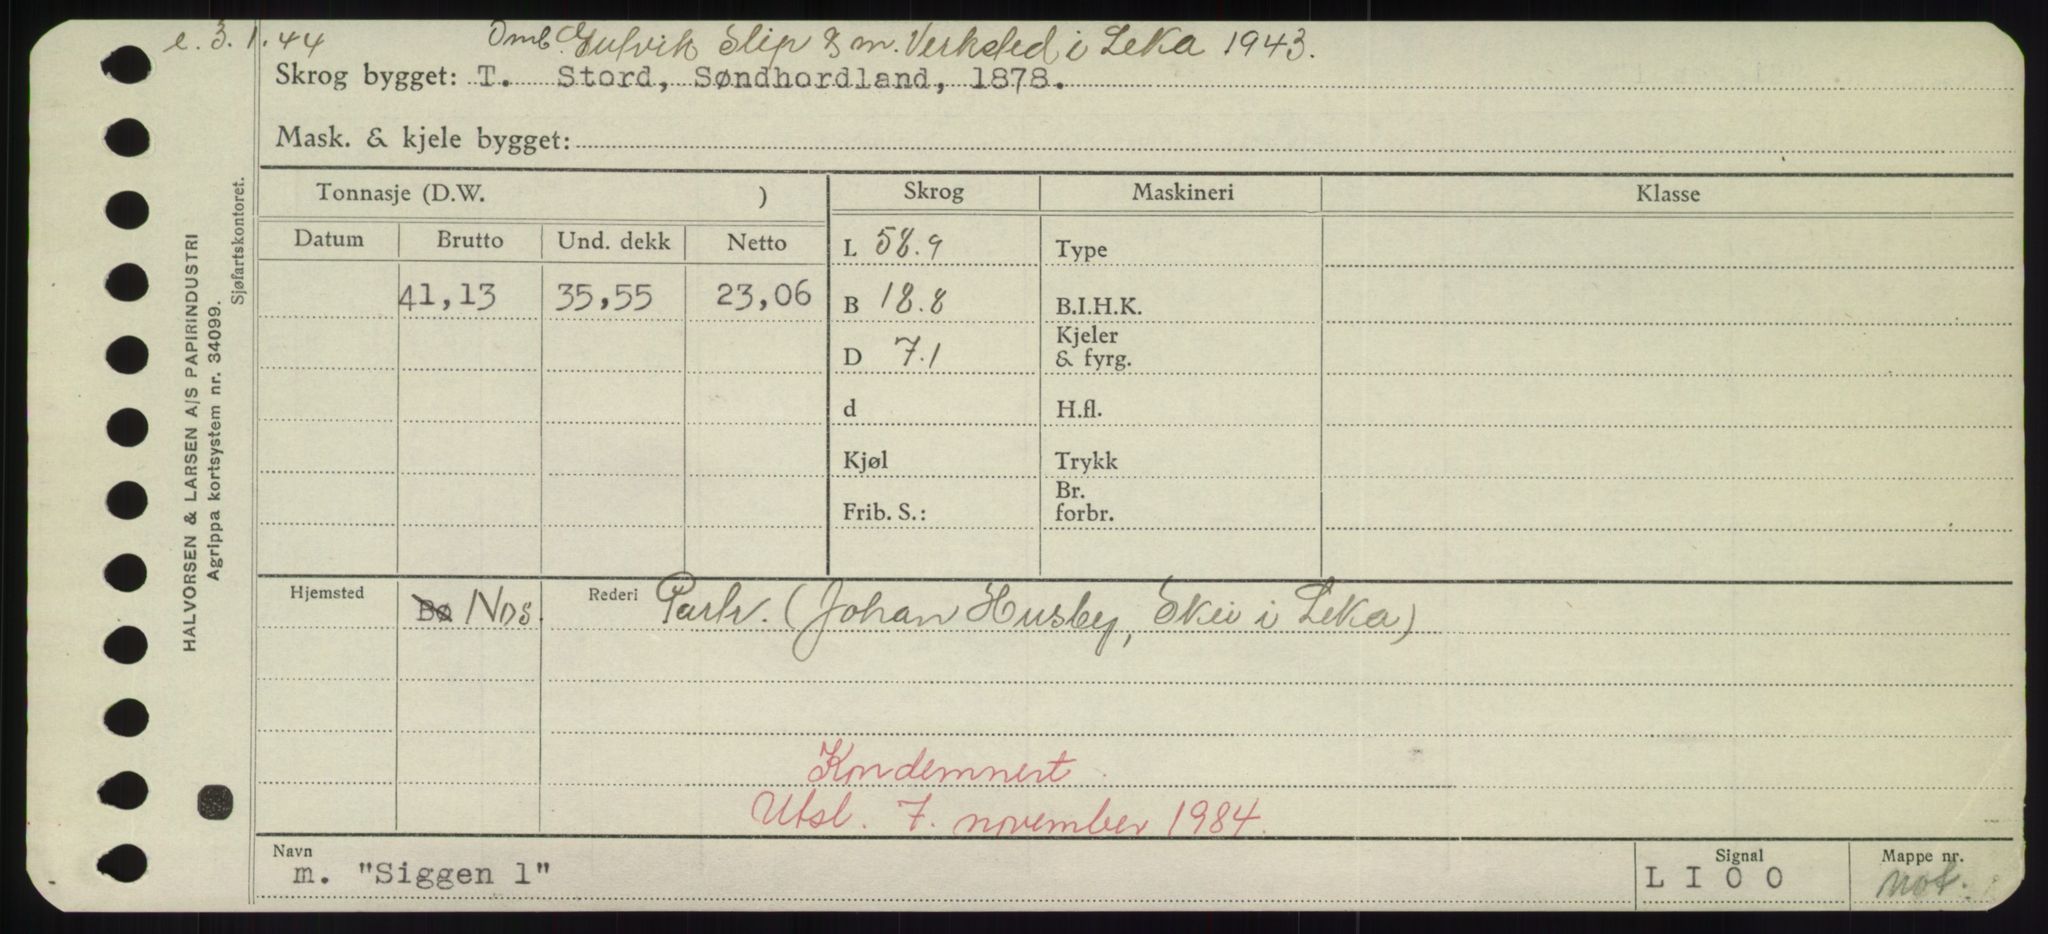 e. 3.1.44 Omb. Gutvik Slip & m. Verksted i Leka 1943.
Skrog bygget: T. Stord, Søndhordland, 1878.
Mask. & kjele bygget:
HALVORSEN & LARSEN A/S PAPIRINDUSTRI
Agrippa kortsystem nr. 34099.
Sjøfartskontoret.
Tonnasje (D.W. ) Skrog Maskineri Klasse
Datum Brutto Und. dekk Netto L 58.9 Type
41,13 35,55 23,06 B 18.8 B.I.H.K.
D 7.1 Kjeler & fyrg.
d H.fl.
Kjøl Trykk
Frib. S.: Br. forbr.
Hjemsted Bø Nds. Rederi Partr. (Johan Husby, Skei i Leka)
Kondemnert.
Utsl. 7. november 1984.
Navn Signal Mappe nr.
m. "Siggen 1" L I O O not.